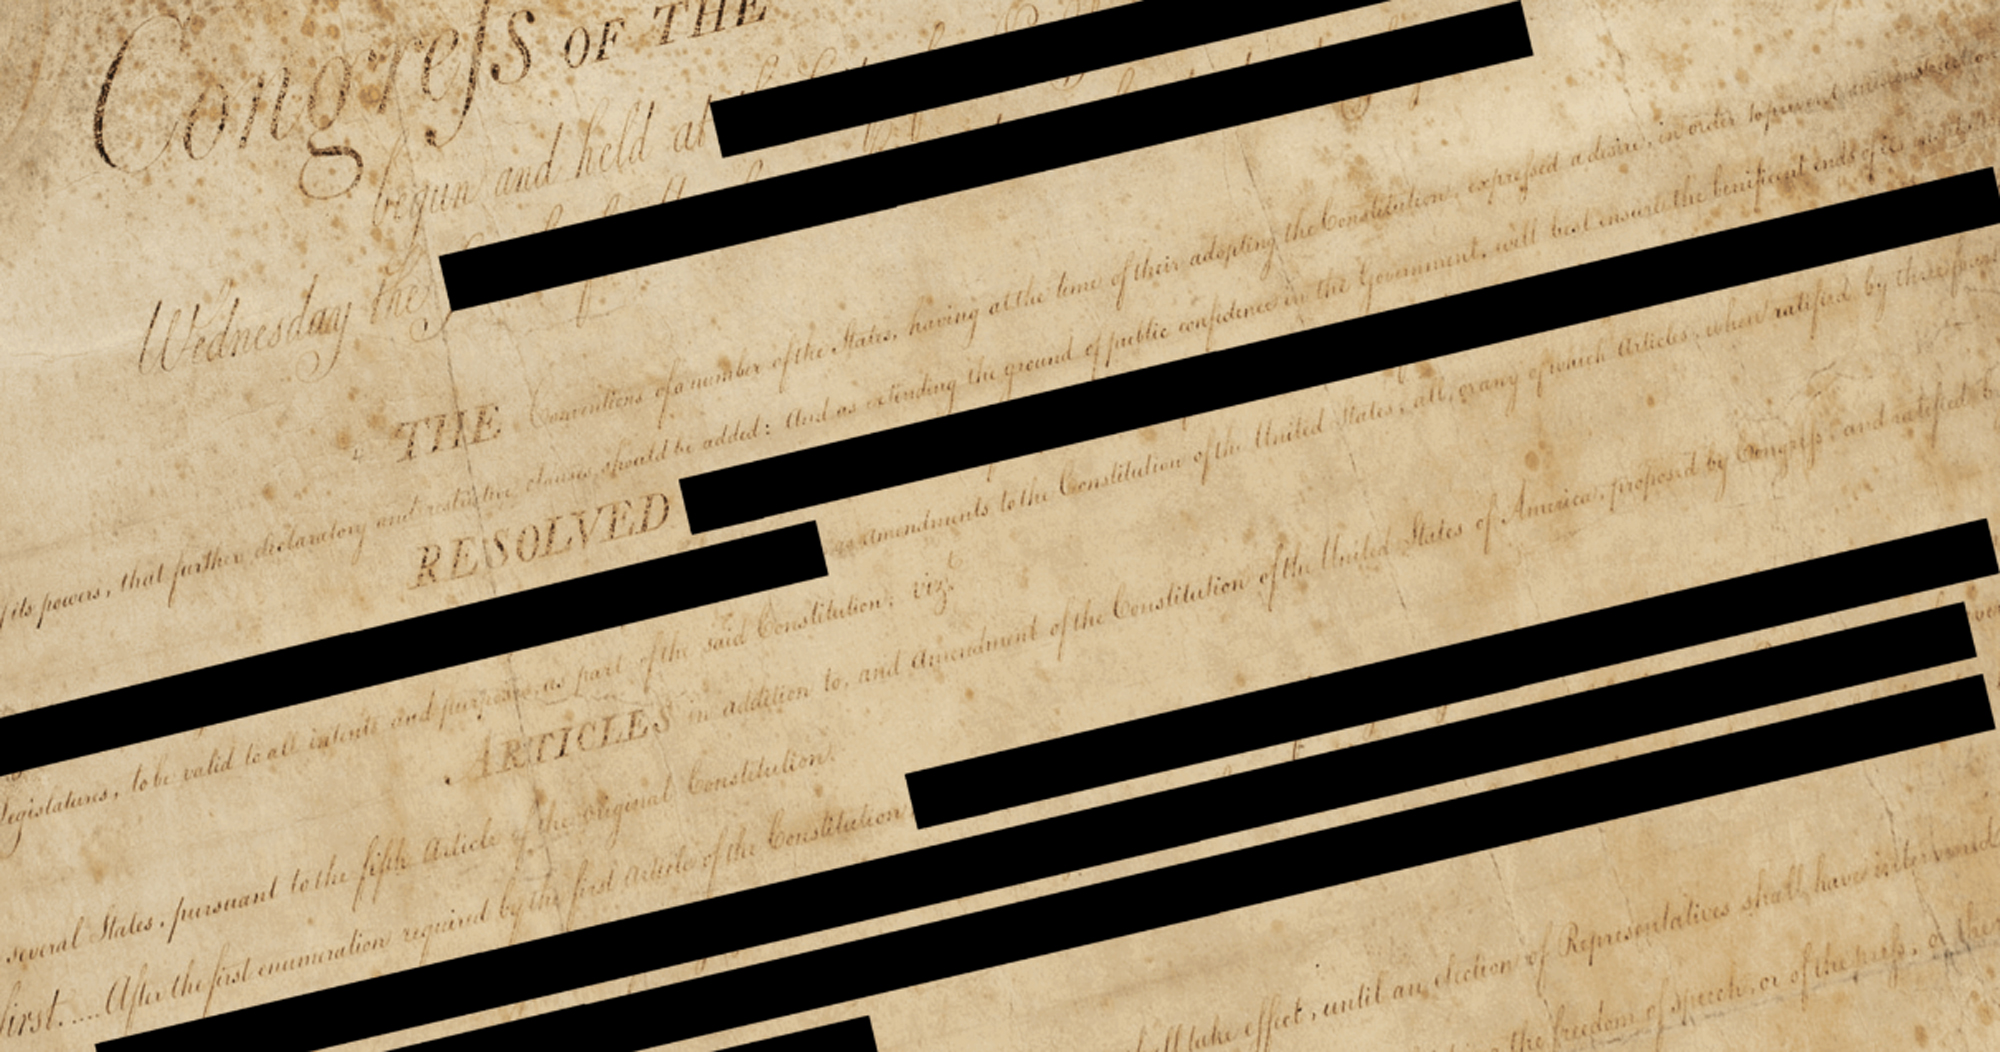 Congreſs OF THE
begun and held at
Wednesday the
THE Conventions of a number of the States, having at the time of their adopting the Constitution, expreſsed a desire, in order to prevent misconstruction
of its powers, that further declaratory and restrictive clauses should be added: And as extending the ground of public confidence in the Government, will best insure the beneficent ends of its
RESOLVED
as amendments to the Constitution of the United States, all, or any of which Articles, when ratified by three fourths
Legislatures, to be valid to all intents and purposes, as part of the said Constitution; viz.
ARTICLES in addition to, and Amendment of the Constitution of the United States of America, proposed by Congreſs, and ratified by
several States, pursuant to the fifth Article of the original Constitution.
first..... After the first enumeration required by the first Article of the Constitution
shall take effect, until an election of Representatives shall have intervened
the freedom of speech, or of the preſs, or the